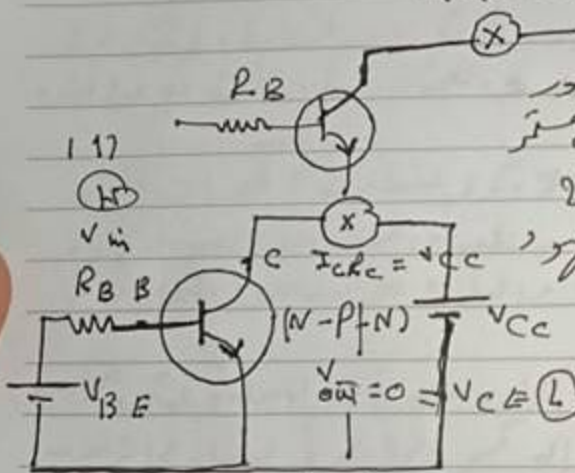 X
R_B
117
V in
X
C I_C R_C = V_CC
R_B B
(N-P-N) V_CC
V_BE
V out = 0 = V_CE (L)